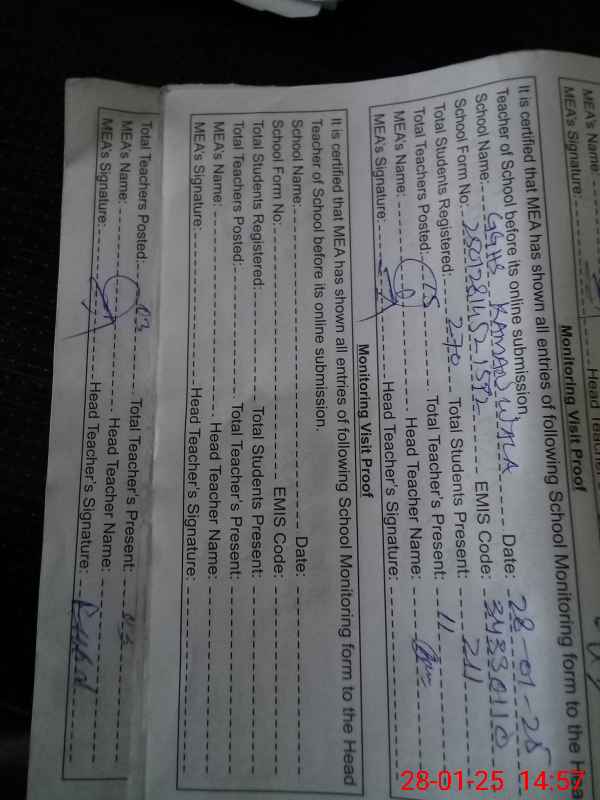 MEA's Name:
MEA's Signature: Head Teacher's
Monitoring Visit Proof
It is certified that MEA has shown all entries of following School Monitoring form to the Hea
Teacher of School before its online submission.
School Name: GGHS KAMADWALA Date: 28-01-25
School Form No: EMIS Code: 34330110
Total Students Registered: 270 Total Students Present: 211
Total Teachers Posted: 15 Total Teacher's Present: 11
MEA's Name: Head Teacher Name:
MEA's Signature: Head Teacher's Signature:
Monitoring Visit Proof
It is certified that MEA has shown all entries of following School Monitoring form to the Head
Teacher of School before its online submission.
School Name: Date:
School Form No: EMIS Code:
Total Students Registered: Total Students Present:
Total Teachers Posted: Total Teacher's Present:
MEA's Name: Head Teacher Name:
MEA's Signature: Head Teacher's Signature:
Total Teachers Posted: 03 Total Teacher's Present: 03
MEA's Name: Head Teacher Name:
MEA's Signature: Head Teacher's Signature:
28-01-25 14:57